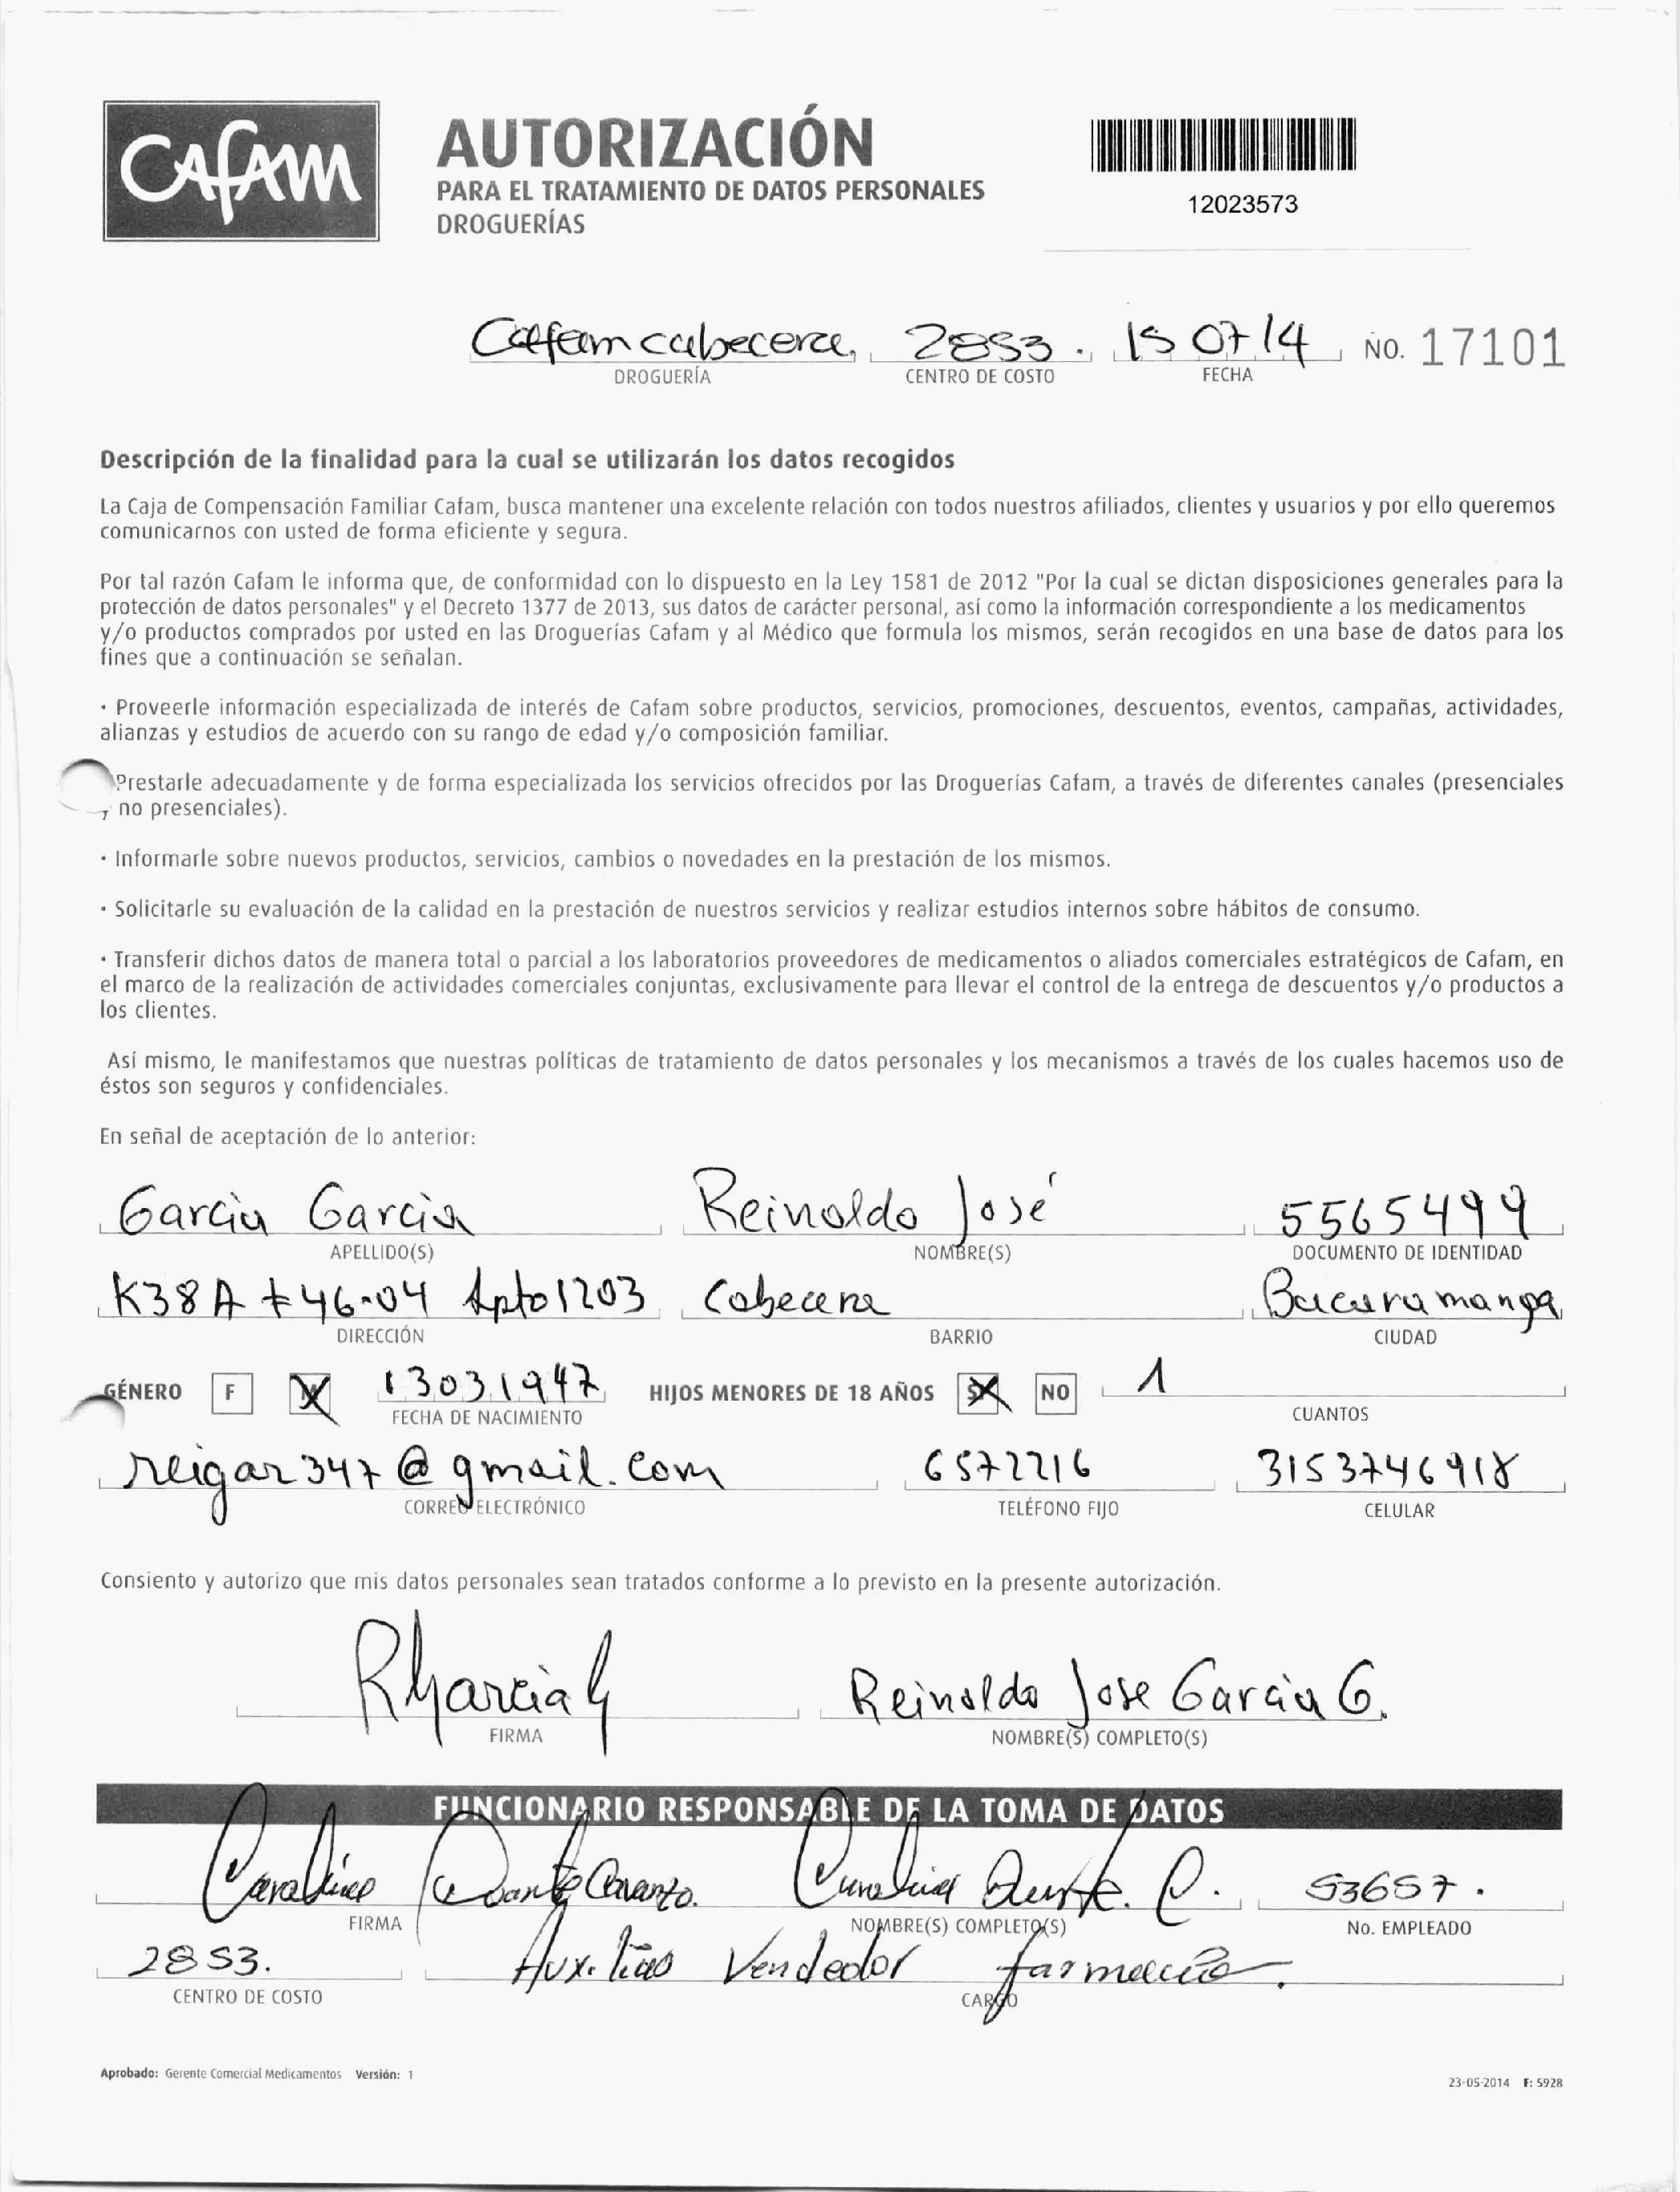 CAFAM
AUTORIZACIÓN
PARA EL TRATAMIENTO DE DATOS PERSONALES
DROGUERÍAS
12023573
Cafam cabecera. 2853. 15 07 14 NO. 17101
DROGUERÍA CENTRO DE COSTO FECHA
Descripción de la finalidad para la cual se utilizarán los datos recogidos
La Caja de Compensación Familiar Cafam, busca mantener una excelente relación con todos nuestros afiliados, clientes y usuarios y por ello queremos
comunicarnos con usted de forma eficiente y segura.
Por tal razón Cafam le informa que, de conformidad con lo dispuesto en la Ley 1581 de 2012 "Por la cual se dictan disposiciones generales para la
protección de datos personales" y el Decreto 1377 de 2013, sus datos de carácter personal, así como la información correspondiente a los medicamentos
y/o productos comprados por usted en las Droguerías Cafam y al Médico que formula los mismos, serán recogidos en una base de datos para los
fines que a continuación se señalan.
· Proveerle información especializada de interés de Cafam sobre productos, servicios, promociones, descuentos, eventos, campañas, actividades,
alianzas y estudios de acuerdo con su rango de edad y/o composición familiar.
Prestarle adecuadamente y de forma especializada los servicios ofrecidos por las Droguerías Cafam, a través de diferentes canales (presenciales
y no presenciales).
· Informarle sobre nuevos productos, servicios, cambios o novedades en la prestación de los mismos.
· Solicitarle su evaluación de la calidad en la prestación de nuestros servicios y realizar estudios internos sobre hábitos de consumo.
· Transferir dichos datos de manera total o parcial a los laboratorios proveedores de medicamentos o aliados comerciales estratégicos de Cafam, en
el marco de la realización de actividades comerciales conjuntas, exclusivamente para llevar el control de la entrega de descuentos y/o productos a
los clientes.
Así mismo, le manifestamos que nuestras políticas de tratamiento de datos personales y los mecanismos a través de los cuales hacemos uso de
éstos son seguros y confidenciales.
En señal de aceptación de lo anterior:
Garcia Garcia Reinaldo José 5565499
APELLIDO(S) NOMBRE(S) DOCUMENTO DE IDENTIDAD
K38A # 46-04 Apto 1203 Cabecera Bucaramanga
DIRECCIÓN BARRIO CIUDAD
GÉNERO F M 13031947 HIJOS MENORES DE 18 AÑOS SI NO 1
FECHA DE NACIMIENTO CUANTOS
reigar347@gmail.com 6572216 3153746918
CORREO ELECTRÓNICO TELÉFONO FIJO CELULAR
Consiento y autorizo que mis datos personales sean tratados conforme a lo previsto en la presente autorización.
RJGarcia G Reinaldo Jose Garcia G.
FIRMA NOMBRE(S) COMPLETO(S)
FUNCIONARIO RESPONSABLE DE LA TOMA DE DATOS
Carolina Duarte Carolina Duarte. C. 53657.
FIRMA NOMBRE(S) COMPLETO(S) No. EMPLEADO
2853. Auxiliar Vendedor farmacia.
CENTRO DE COSTO CARGO
Aprobado: Gerente Comercial Medicamentos Versión: 1
23-05-2014 F: 5928